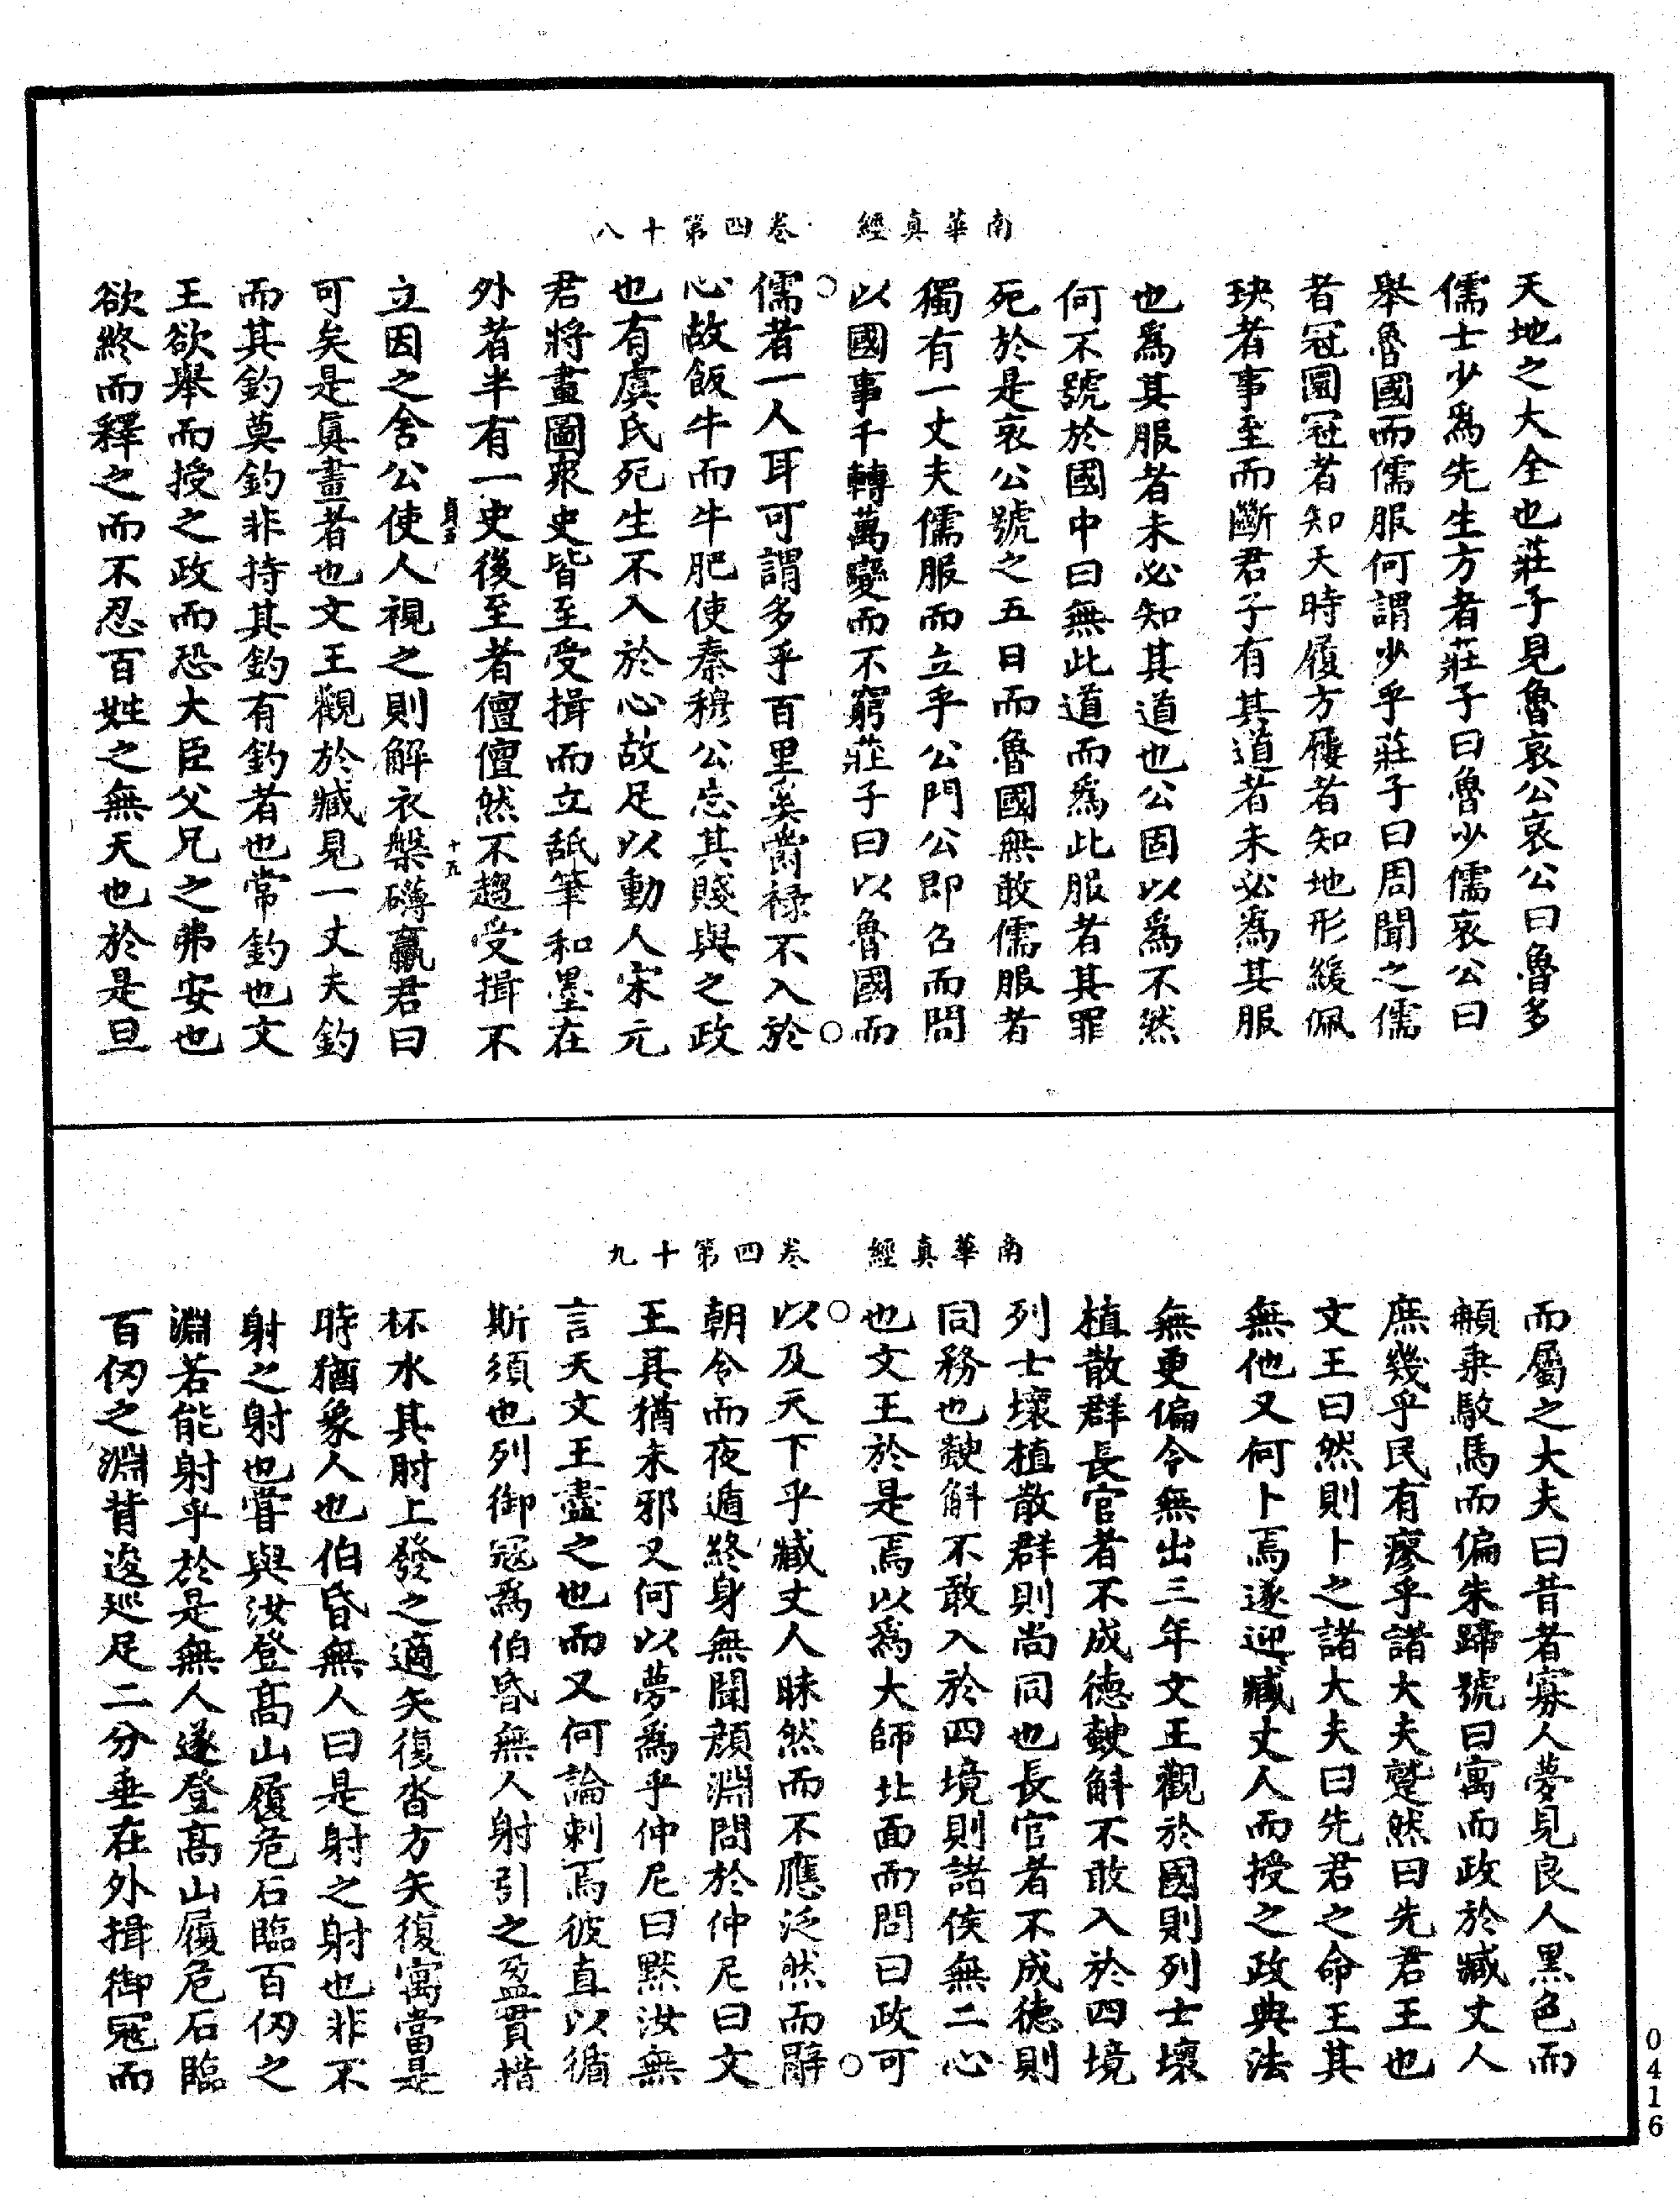 南華真經　卷四第十八
天地之大全也莊子見魯哀公哀公曰魯多
儒士少爲先生方者莊子曰魯少儒哀公曰
舉魯國而儒服何謂少乎莊子曰周聞之儒
者冠圜冠者知天時履方屨者知地形緩佩
玦者事至而斷君子有其道者未必爲其服
也爲其服者未必知其道也公固以爲不然
何不號於國中曰無此道而爲此服者其罪
死於是哀公號之五日而魯國無敢儒服者
獨有一丈夫儒服而立乎公門公即召而問
以國事千轉萬變而不窮莊子曰以魯國而
儒者一人耳可謂多乎百里奚爵祿不入於
心故飯牛而牛肥使秦穆公忘其賤與之政
也有虞氏死生不入於心故足以動人宋元
君將畫圖衆史皆至受揖而立舐筆和墨在
外者半有一史後至者儃儃然不趨受揖不
貞五　十九
立因之舍公使人視之則解衣槃礴臝君曰
可矣是眞畫者也文王觀於臧見一丈夫釣
而其釣莫釣非持其釣有釣者也常釣也文
王欲舉而授之政而恐大臣父兄之弗安也
欲終而釋之而不忍百姓之無天也於是旦
南華真經　卷四第十九
而屬之大夫曰昔者寡人夢見良人黑色而
𩑺乗駁馬而偏朱蹄號曰寓而政於臧丈人
庶幾乎民有瘳乎諸大夫蹵然曰先君王也
文王曰然則卜之諸大夫曰先君之命王其
無他又何卜焉遂迎臧丈人而授之政典法
無更偏令無出三年文王觀於國則列士壞
植散群長官者不成德䠶斛不敢入於四境
列士壞植散群則尚同也長官者不成德則
同務也䠶斛不敢入於四境則諸侯無二心
也文王於是焉以爲大師北面而問曰政可
以及天下乎臧丈人昧然而不應泛然而辭
朝令而夜遁終身無聞顔淵問於仲尼曰文
王其猶未邪又何以夢爲乎仲尼曰默汝無
言夫文王盡之也而又何論刺焉彼直以循
斯須也列御寇爲伯昏無人射引之盈貫措
杯水其肘上發之適矢復沓方矢復寓當是
時猶象人也伯昏無人曰是射之射也非不
射之射也嘗與汝登髙山履危石臨百仞之
淵若能射乎於是無人遂登髙山履危石臨
百仞之淵背逡巡足二分垂在外揖御寇而
0416